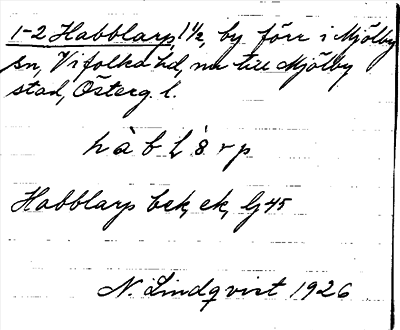 1-2 Habblarp, 1 1/2, by förr i Mjölby
sn, Vifolka hd, nu till Mjölby
stad, Österg. l.
h à b ł 8 r p
Habblarp bek, ek, lj 45
N. Lindqvist 1926